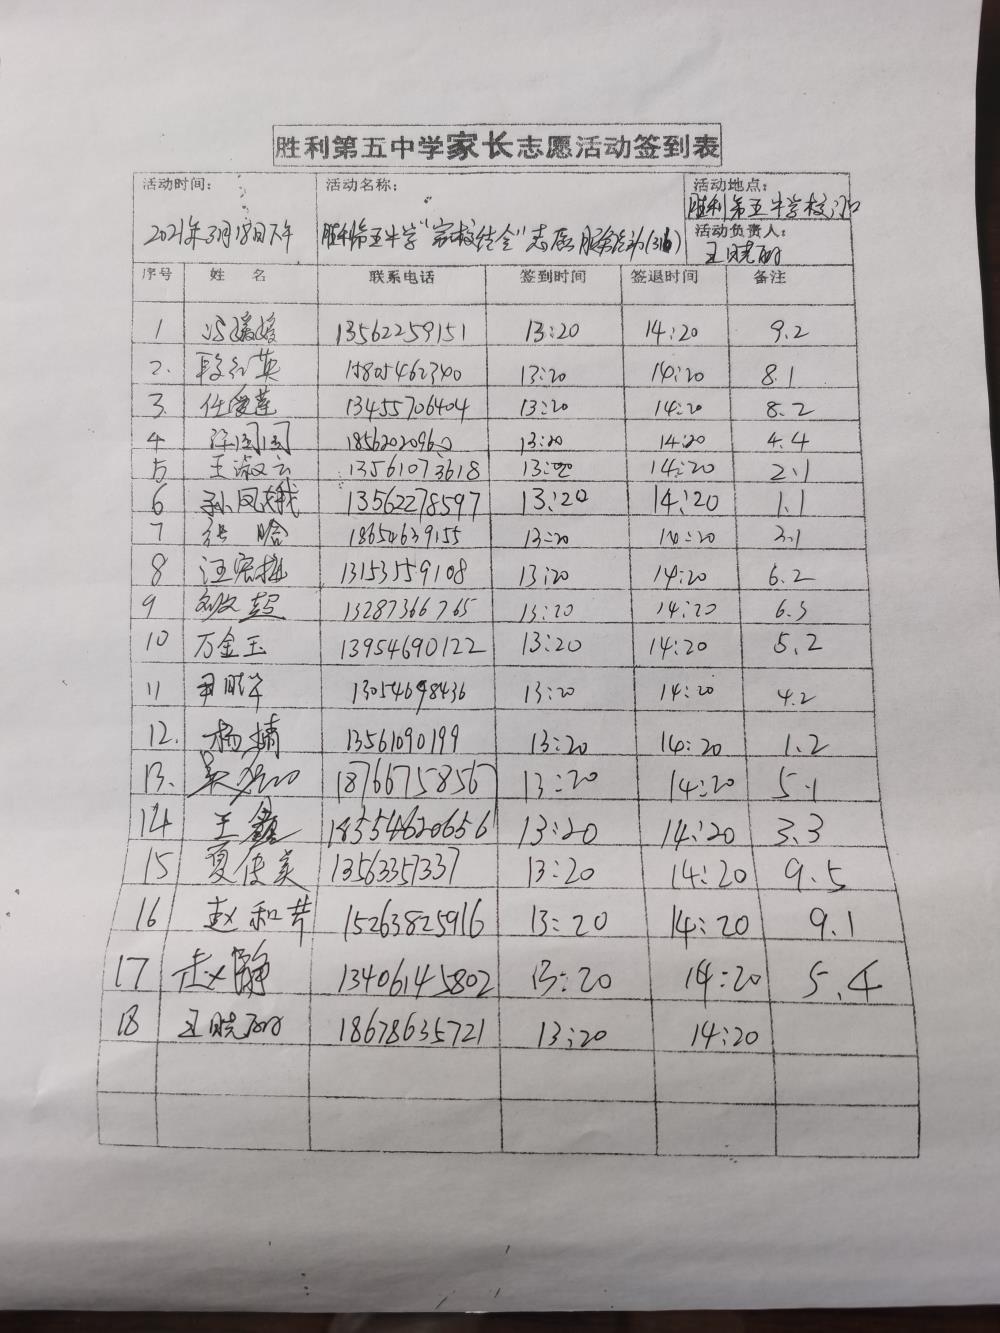 胜利第五中学家长志愿活动签到表
活动时间: 活动名称: 活动地点:
胜利第五中学校门口
2021年3月18日下午 胜利第五中学"家校结合"志愿服务活动(316)
活动负责人:
王晓丽
序号 姓 名 联系电话 签到时间 签退时间 备注
1 冯媛媛 13562259151 13:20 14:20 9.2
2. 段红英 15805462340 13:20 14:20 8.1
3. 任爱莲 13455706404 13:20 14:20 8.2
4 18562020960 13:20 14:20 4.4
5 王淑云 13561073618 13:20 14:20 2.1
6 孙凤娥 13562278597 13:20 14:20 1.1
7 张晗 18654639155 13:20 14:20 3.1
8 汪宏雅 13153159108 13:20 14:20 6.2
9 刘文超 13287366765 13:20 14:20 6.3
10 万金玉 13954690122 13:20 14:20 5.2
11 尹晓华 13054698436 13:20 14:20 4.2
12. 杨婧 13561090199 13:20 14:20 1.2
13. 吴 18766758567 13:20 14:20 5.1
14 王鑫 18554620656 13:20 14:20 3.3
15 夏俊美 13563357337 13:20 14:20 9.5
16 赵和芹 15263825916 13:20 14:20 9.1
17 赵静 13406145802 13:20 14:20 5.4
18 王晓丽 18678635721 13:20 14:20